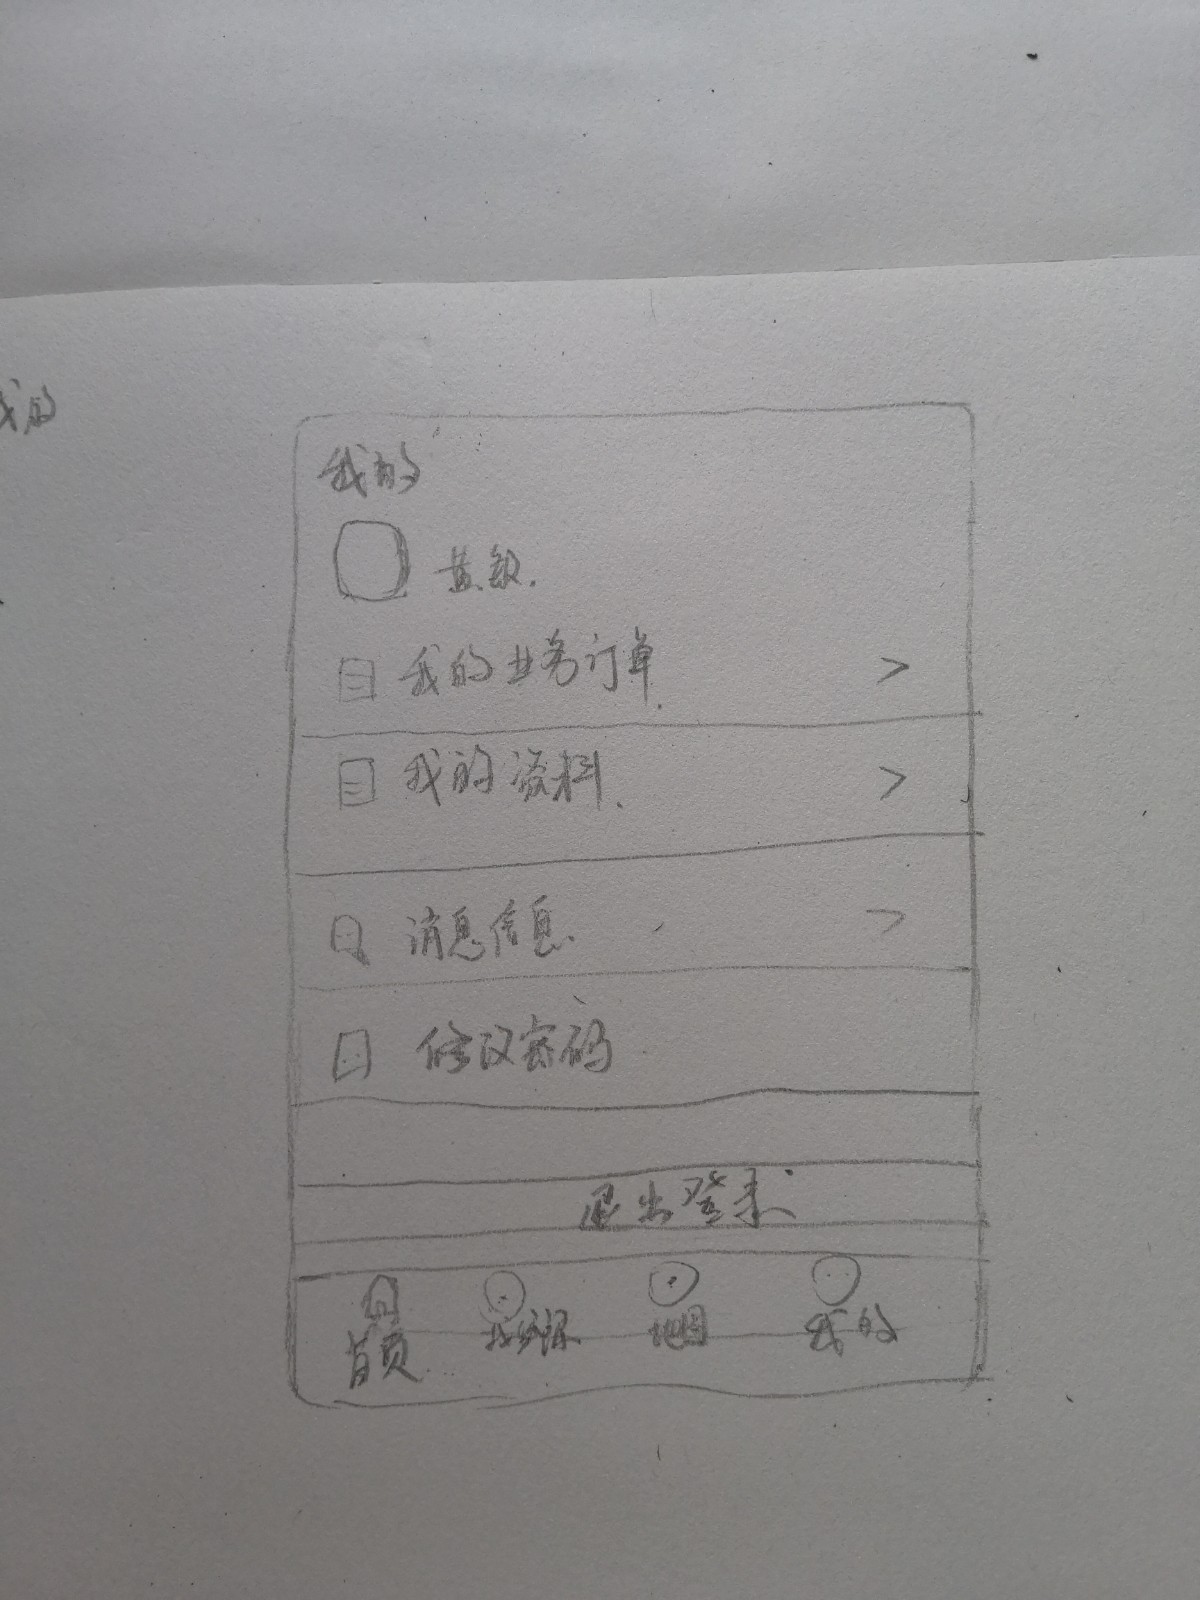 我的
我的
黄敏.
我的业务订单 >
我的资料. >
消息信息. >
修改密码
退出登录
首页 地图 我的